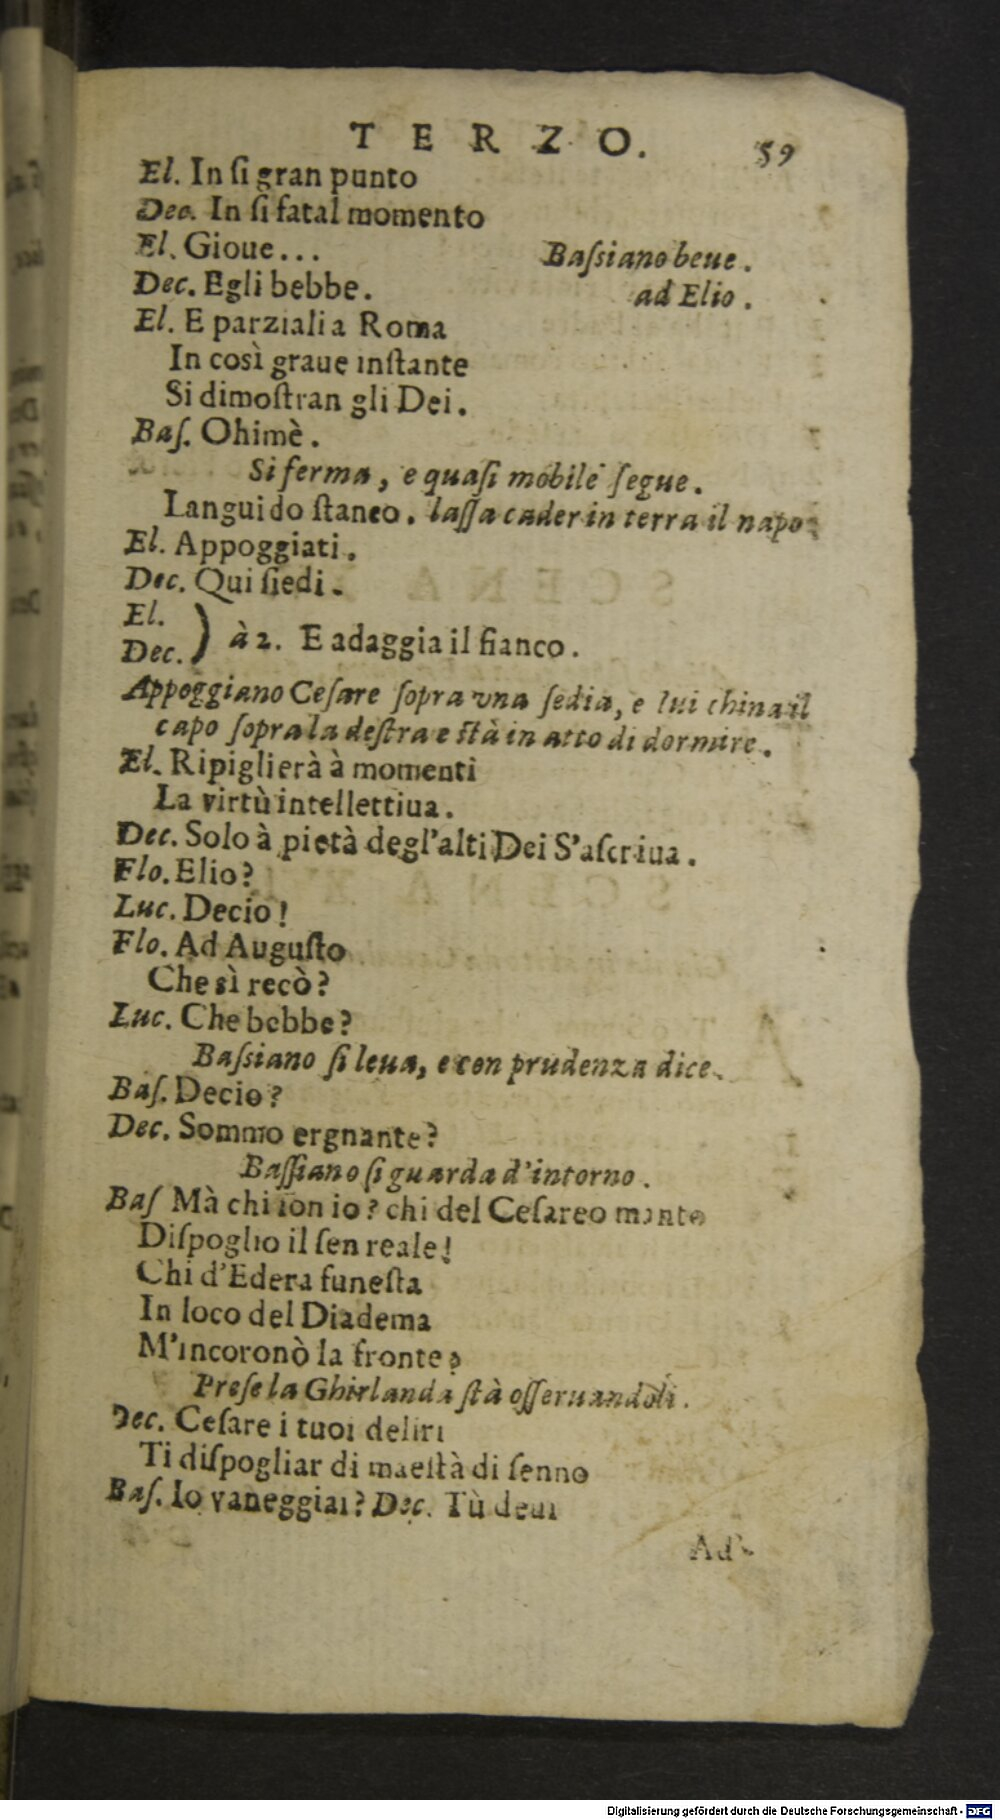 TERZO. 59
El. In ſi gran punto
Dec. In ſi fatal momento
El. Gioue... Baſsiano beue.
Dec. Egli bebbe. ad Elio.
El. E parziali a Roma
In così graue inſtante
Si dimoſtran gli Dei.
Baſ. Ohimè.
Si ferma, e quaſi mobile ſegue.
Languido ſtanco. laſſa cader in terra il napo
El. Appoggiati.
Dec. Qui ſiedi.
El.
Dec. ) à 2. E adaggia il fianco.
Appoggiano Ceſare ſopra vna ſedia, e lui china il
capo ſopra la deſtra e ſtà in atto di dormire.
El. Ripiglierà à momenti
La virtù intellettiua.
Dec. Solo à pietà degl'alti Dei S'aſcriua.
Flo. Elio?
Luc. Decio!
Flo. Ad Auguſto
Che sì recò?
Luc. Che bebbe?
Baſsiano ſi leua, e con prudenza dice.
Baſ. Decio?
Dec. Sommo ergnante?
Baſſiano ſi guarda d'intorno.
Baſ Mà chi ſon io? chi del Ceſareo manto
Diſpoglio il ſen reale!
Chi d'Edera funeſta
In loco del Diadema
M'incoronò la fronte?
Preſe la Ghirlanda ſtà oſſeruandoli.
Dec. Ceſare i tuoi deliri
Ti diſpogliar di maeſtà di ſenno
Baſ. Io vaneggiai? Dec. Tù deui
Ad
Digitalisierung gefördert durch die Deutsche Forschungsgemeinschaft - DFG